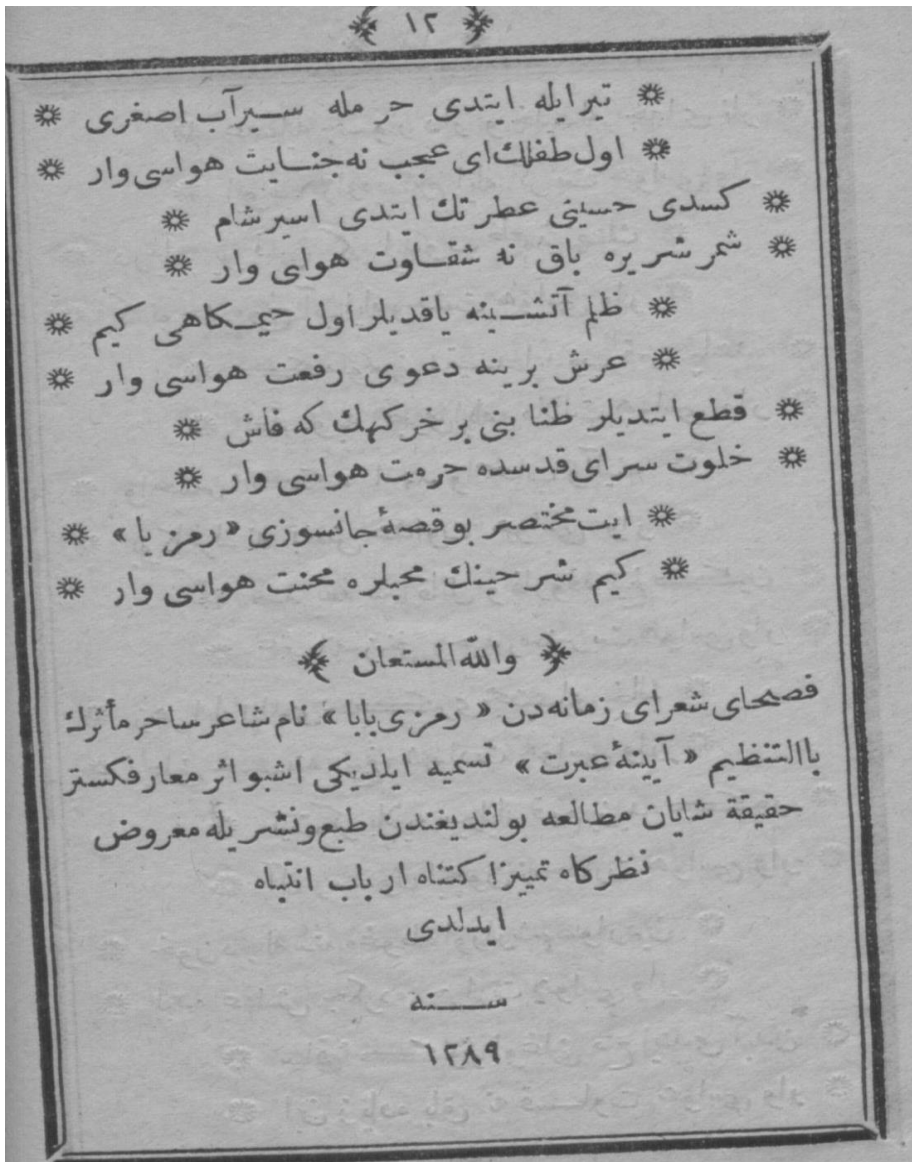 ١٢
تیرایله ایتدی حرمله سیرآب اصغری
اول طفلك ای عجب نه جنایت هواسی وار
کسدی حسینی عطرتك ایتدی اسیر شام
شمر شریره باق نه شقاوت هوای وار
ظلم آتشینه یاقدیلر اول حیمکاهی کیم
عرش برینه دعوی رفعت هواسی وار
قطع ایتدیلر طنابنی بر خرکهك که فاش
خلوت سرای قدسده حرمت هواسی وار
ایت مختصر بوقصۀ جانسوزی « رمزیا »
کیم شرحینك محبلره محنت هواسی وار
والله المستعان
فصحای شعرای زمانه‌دن « رمزی بابا » نام شاعر ساحر مأثرك
باالتنظیم « آیینۀ عبرت » تسمیه ایلدیکی اشبو اثر معارفکستر
حقیقة شایان مطالعه بولندیغندن طبع ونشریله معروض
نظرکاه تمییز اکتناه ارباب انتباه
ایدلدی
سنه
١٢٨٩